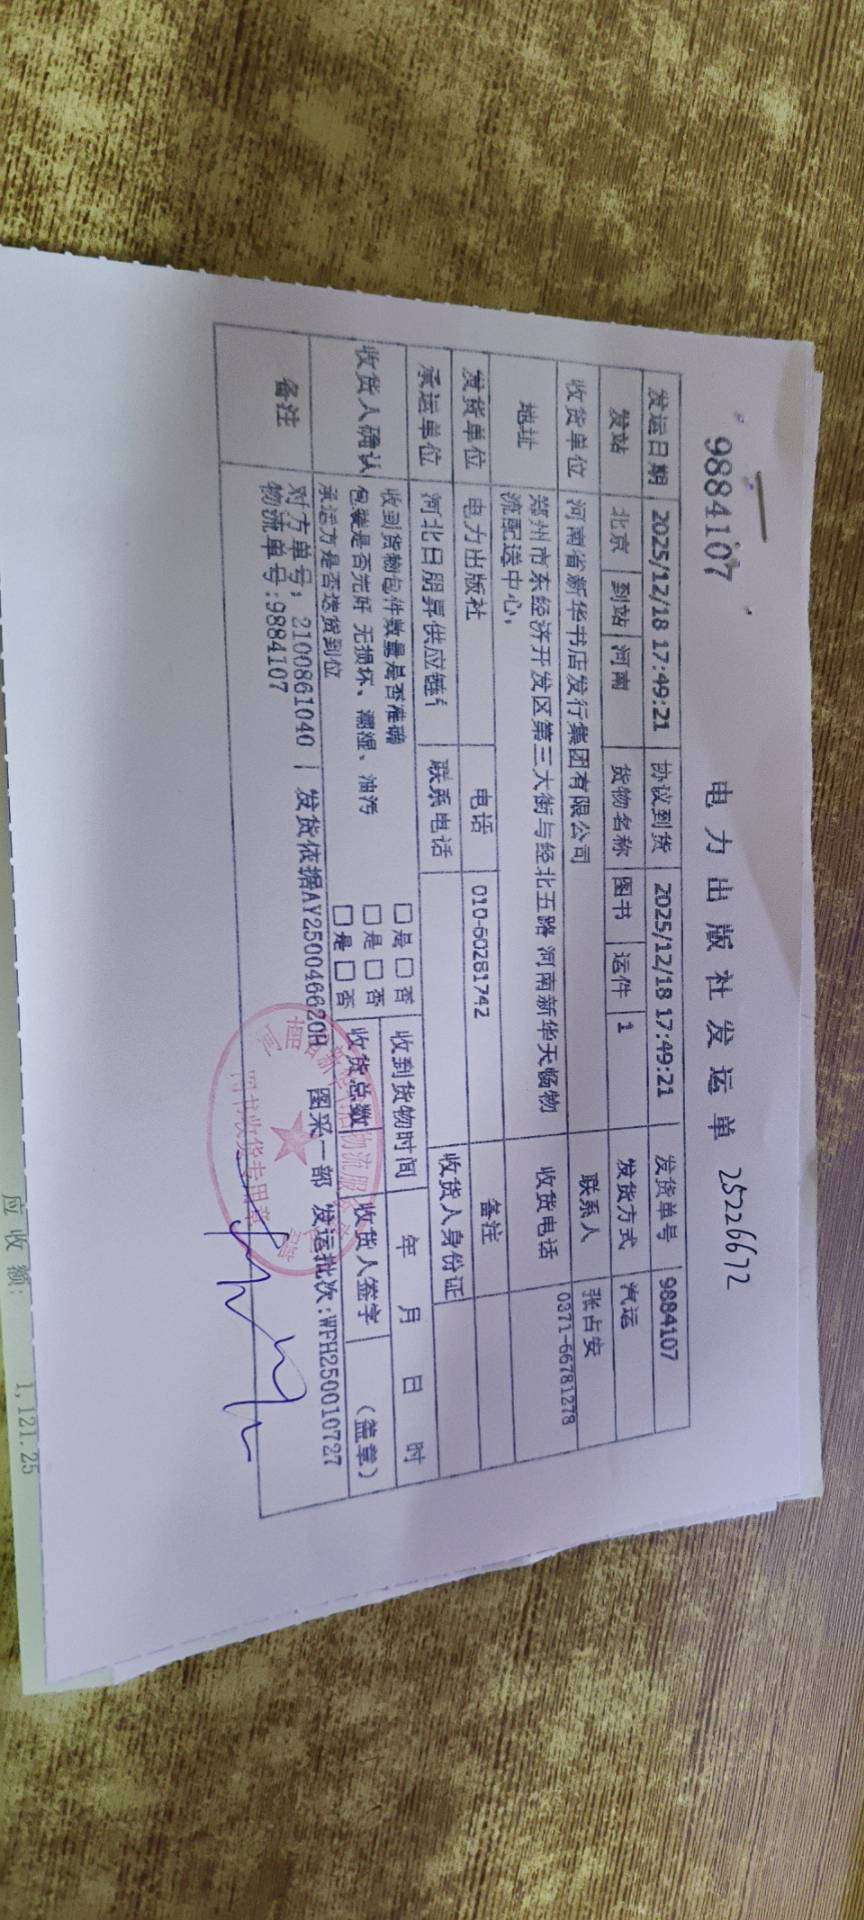 9884107 电力出版社发运单 25226672
发运日期 2025/12/18 17:49:21 协议到货 2025/12/18 17:49:21 发货单号 9884107
发站 北京 到站 河南 货物名称 图书 运件 1 发货方式 汽运
收货单位 河南省新华书店发行集团有限公司 联系人 张占安
地址 郑州市东经济开发区第三大街与经北五路 河南新华天畅物
流配送中心, 收货电话 0371-66781278
发货单位 电力出版社 电话 010-60281742 备注
承运单位 河北日朋昇供应链 联系电话 收货人身份证
收货人确认 收到货物包件数量是否准确 □是□否 收到货物时间 年 月 日 时
包装是否完好 无损坏、潮湿、油污 □是□否 收货总数 收货人签字 (盖章)
承运方是否送货到位 □是□否
备注 对方单号: 2100861040 | 发货依据AY25004662OH 图采一部 发运批次:WFH250010727
物流单号:9884107
图书收货专用章
应收额: 1,121.25